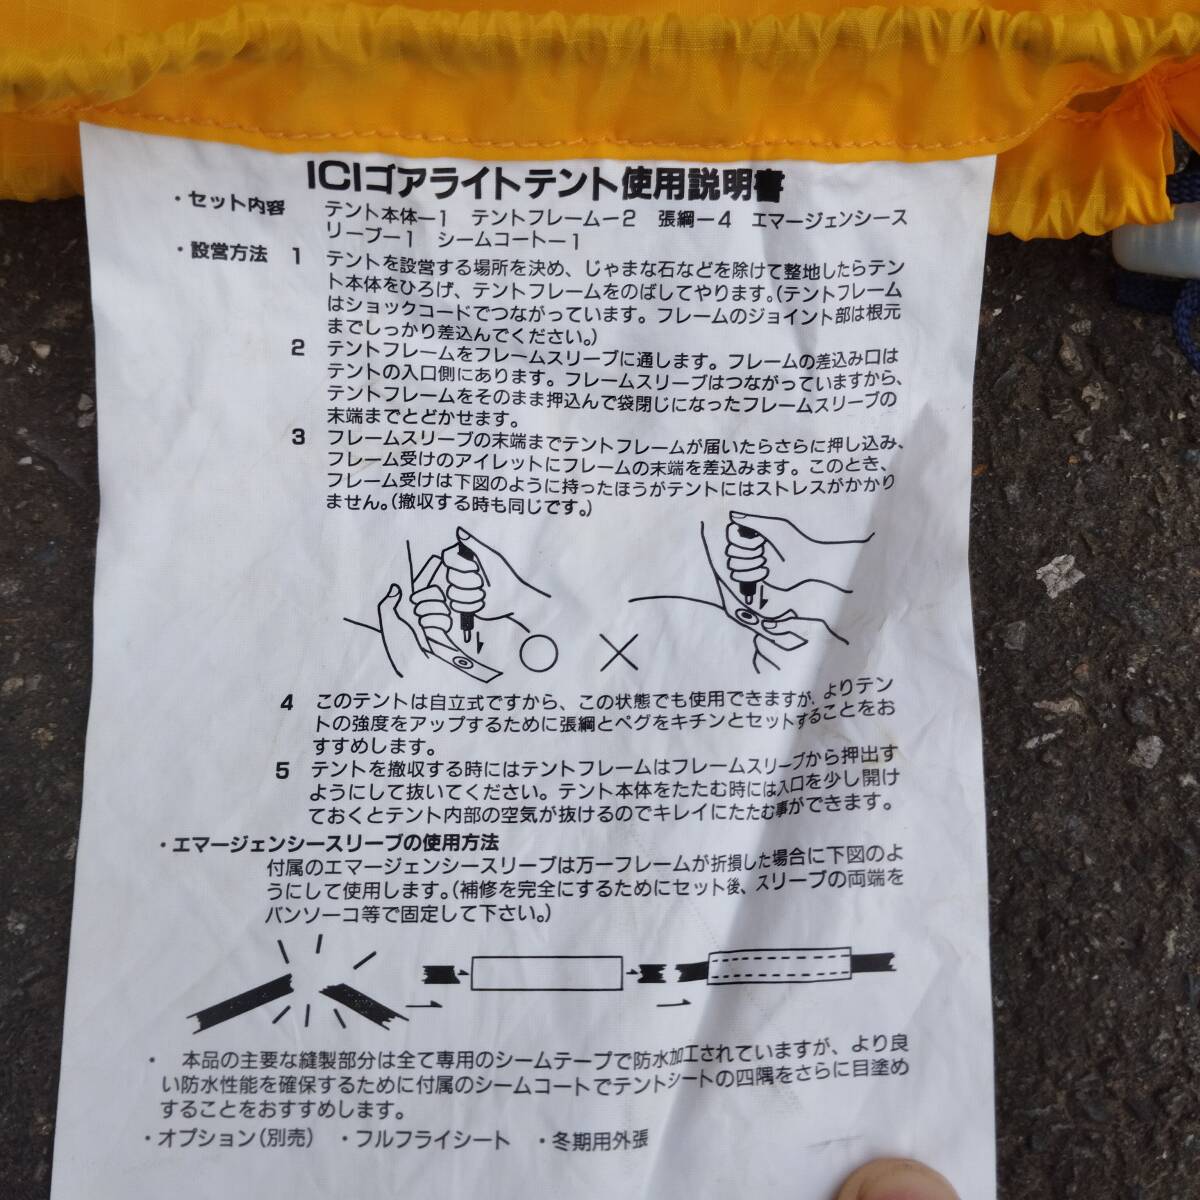 ICIゴアライトテント使用説明書
・セット内容 テント本体ー1 テントフレームー2 張綱ー4 エマージェンシース
リーブー1 シームコートー1
・設営方法 1 テントを設営する場所を決め、じゃまな石などを除けて整地したらテン
ト本体をひろげ、テントフレームをのばしてやります。(テントフレーム
はショックコードでつながっています。フレームのジョイント部は根元
までしっかり差込んでください。)
2 テントフレームをフレームスリーブに通します。フレームの差込み口は
テントの入口側にあります。フレームスリーブはつながっていますから、
テントフレームをそのまま押込んで袋閉じになったフレームスリーブの
末端までとどかせます。
3 フレームスリーブの末端までテントフレームが届いたらさらに押し込み、
フレーム受けのアイレットにフレームの末端を差込みます。このとき、
フレーム受けは下図のように持ったほうがテントにはストレスがかかり
ません。(撤収する時も同じです。)
4 このテントは自立式ですから、この状態でも使用できますが、よりテン
トの強度をアップするために張綱とペグをキチンとセットすることをお
すすめします。
5 テントを撤収する時にはテントフレームはフレームスリーブから押出す
ようにして抜いてください。テント本体をたたむ時には入口を少し開け
ておくとテント内部の空気が抜けるのでキレイにたたむ事ができます。
・エマージェンシースリーブの使用方法
付属のエマージェンシースリーブは万一フレームが折損した場合に下図のよ
うにして使用します。(補修を完全にするためにセット後、スリーブの両端を
バンソーコ等で固定して下さい。)
・ 本品の主要な縫製部分は全て専用のシームテープで防水加工されていますが、より良
い防水性能を確保するために付属のシームコートでテントシートの四隅をさらに目塗め
することをおすすめします。
・オプション(別売) ・フルフライシート ・冬期用外張